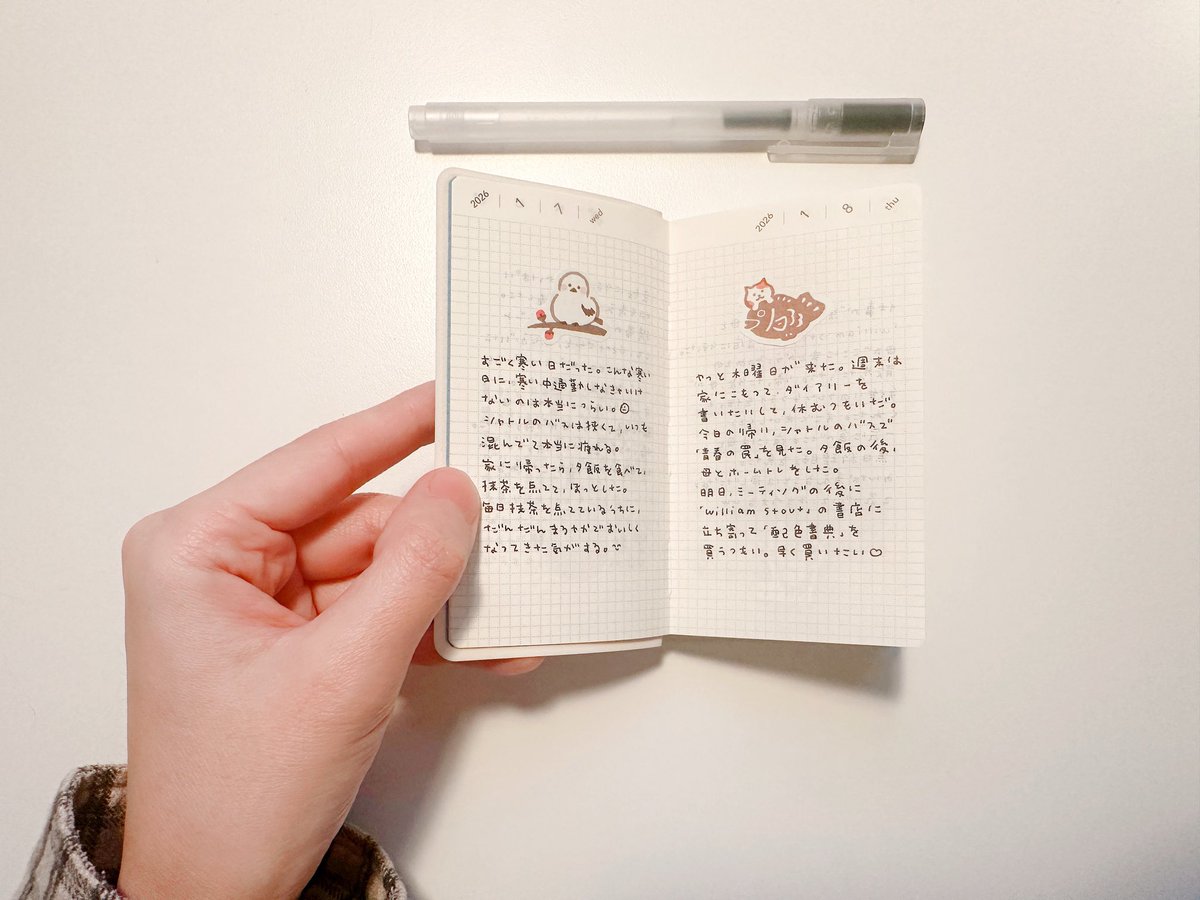 2026 1 7 wed
すごく寒い日だった。こんな寒い
日に、寒い中通勤しなきゃいけ
ないのは本当につらい。☹
シャトルのバスは狭くて、いつも
混んでて本当に疲れる。
家に帰ったら、夕飯を食べて、
抹茶を点てて、ほっとした。
毎日抹茶を点てているうちに、
だんだんまろやかでおいしく
なってきた気がする。
2026 1 8 thu
やっと木曜日が来た。週末は
家にこもって、ダイアリーを
書いたりして、休むつもりだ。
今日の帰り、シャトルのバスで
「青春の罠」を見た。夕飯の後、
母とホームトレをした。
明日、ミーティングの後に
「william stout」の書店に
立ち寄って「配色書典」を
買うつもり。早く買いたい♡